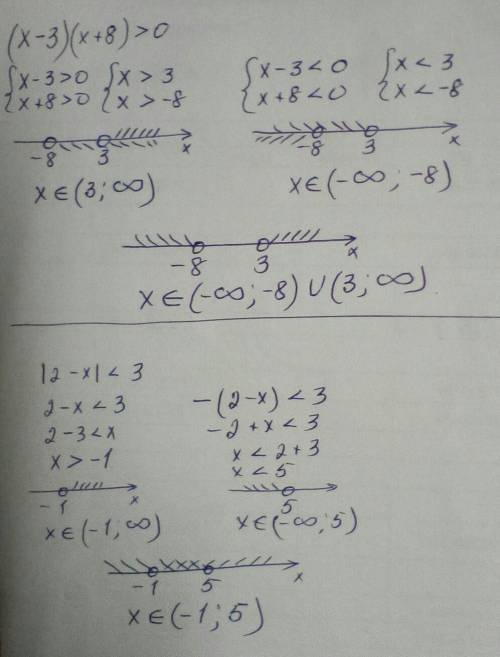 (x-3)(x+8)>0
{x-3>0 {x>3
{x+8>0 {x>-8
-8 3 x
x∈(3;∞)
{x-3<0 {x<3
{x+8<0 {x<-8
-8 3 x
x∈(-∞;-8)
-8 3 x
x∈(-∞;-8)∪(3;∞)
|2-x|<3
2-x<3
2-3<x
x>-1
-1 x
x∈(-1;∞)
-(2-x)<3
-2+x<3
x<2+3
x<5
5
x∈(-∞;5)
-1 5 x
x∈(-1;5)